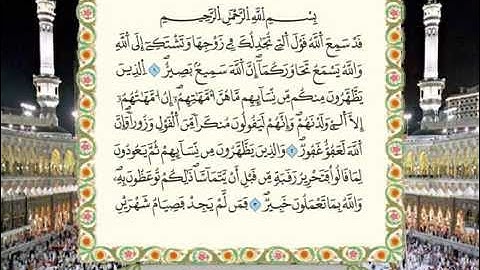 بِسْمِ اللَّهِ الرَّحْمَٰنِ الرَّحِيمِ
قَدْ سَمِعَ اللَّهُ قَوْلَ الَّتِي تُجَادِلُكَ فِي زَوْجِهَا وَتَشْتَكِي إِلَى اللَّهِ
وَاللَّهُ يَسْمَعُ تَحَاوُرَكُمَا إِنَّ اللَّهَ سَمِيعٌ بَصِيرٌ ١ الَّذِينَ
يُظَاهِرُونَ مِنكُم مِّن نِّسَائِهِم مَّا هُنَّ أُمَّهَاتِهِمْ إِنْ أُمَّهَاتُهُمْ
إِلَّا اللَّائِي وَلَدْنَهُمْ وَإِنَّهُمْ لَيَقُولُونَ مُنكَرًا مِّنَ الْقَوْلِ وَزُورًا وَإِنَّ
اللَّهَ لَعَفُوٌّ غَفُورٌ ٢ وَالَّذِينَ يُظَاهِرُونَ مِن نِّسَائِهِمْ ثُمَّ يَعُودُونَ
لِمَا قَالُوا فَتَحْرِيرُ رَقَبَةٍ مِّن قَبْلِ أَن يَتَمَاسَّا ذَٰلِكُمْ تُوعَظُونَ بِهِ
وَاللَّهُ بِمَا تَعْمَلُونَ خَبِيرٌ ٣ فَمَن لَّمْ يَجِدْ فَصِيَامُ شَهْرَيْنِ